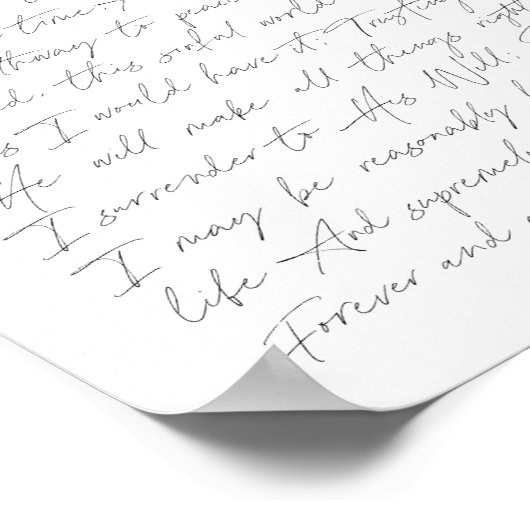 time;
thway to peace
d, this sinful world
s I would have it; Trusting
He will make all things right
I surrender to His Will;
I may be reasonably
life And supremely
Forever and